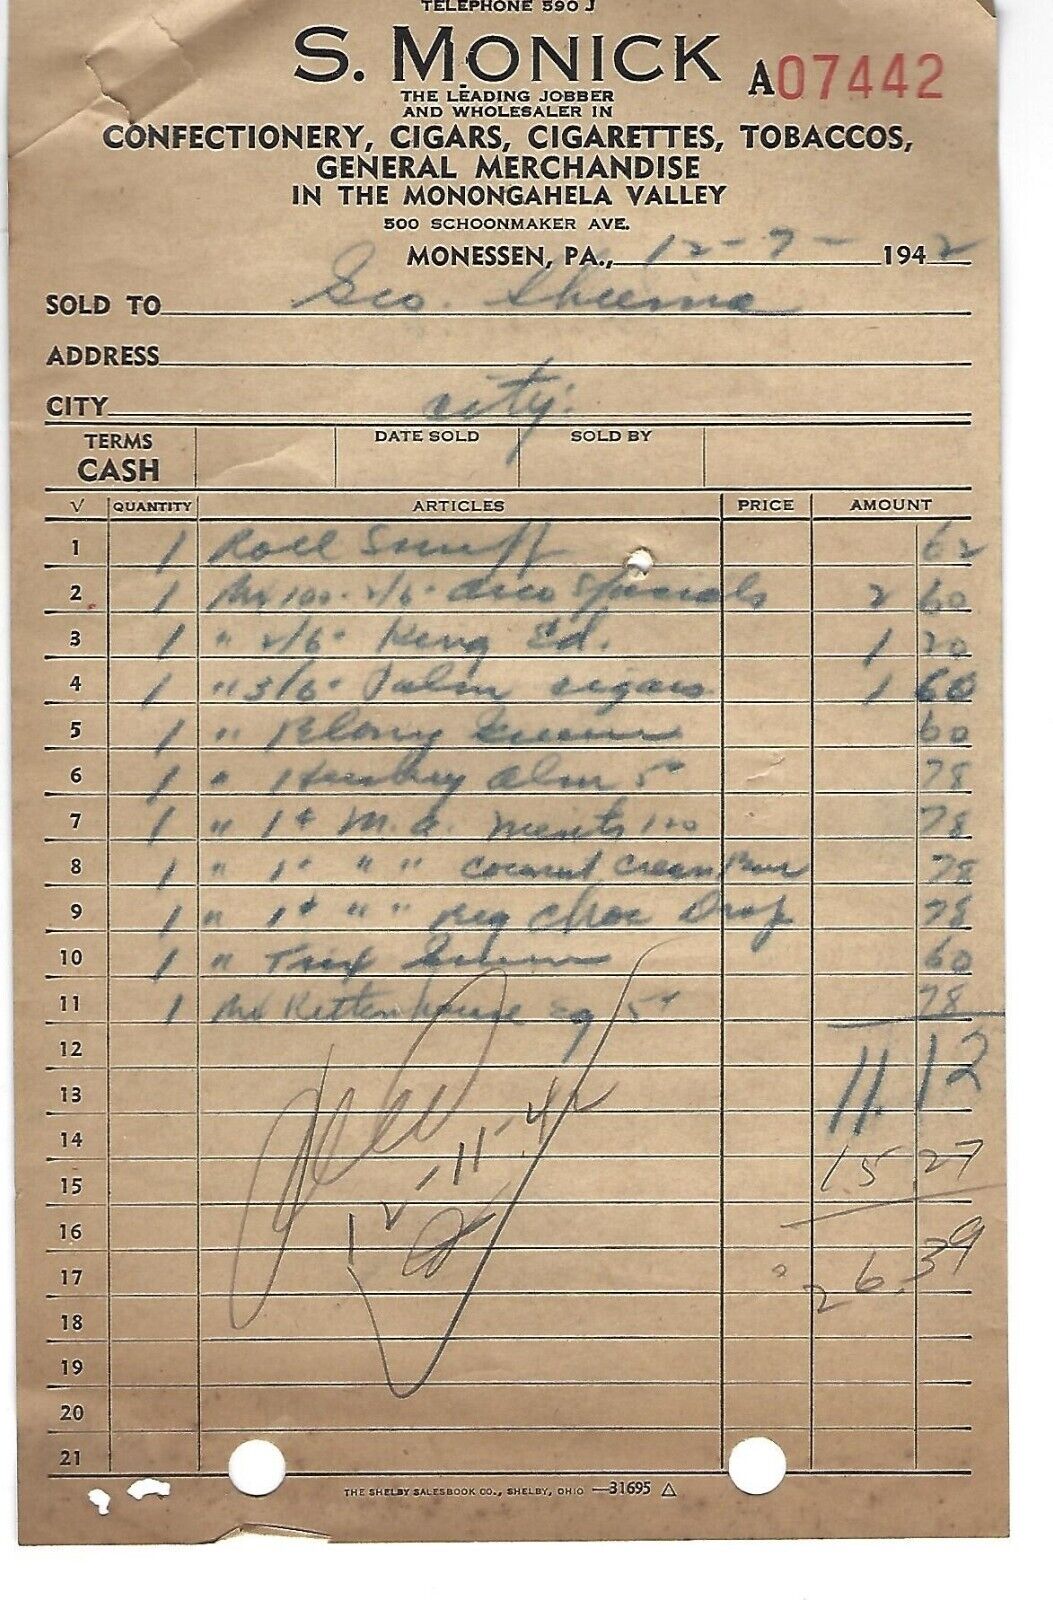 TELEPHONE 590 J
S. MONICK
A07442
THE LEADING JOBBER
AND WHOLESALER IN
CONFECTIONERY, CIGARS, CIGARETTES, TOBACCOS,
GENERAL MERCHANDISE
IN THE MONONGAHELA VALLEY
500 SCHOONMAKER AVE.
MONESSEN, PA., 12-7- 1942
SOLD TO Geo.
ADDRESS
CITY city.
TERMS CASH DATE SOLD SOLD BY
√ QUANTITY ARTICLES PRICE AMOUNT
1 1 Roll Snuff 62
2 1 100-2/6- Specials 2 60
3 1 " 2/6- King Ed. 1 20
4 1 " 3/6- Palm cigars 1 60
5 1 " 60
6 1 " Hershey Alm 5¢ 78
7 1 " 1¢ M.a. Mints 120 78
8 1 " 1¢ " " Cocoanut Cream 78
9 1 " 1¢ " " Reg Choc Drop 78
10 1 " 60
11 1 Rittenhouse 5¢ 78
12
13 11.12
14
15 15.27
16
17 26.39
12-11-42
18
19
20
21
THE SHELBY SALESBOOK CO., SHELBY, OHIO —31695 △